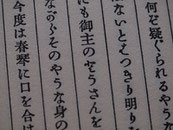 何ぞ疑ぐられるやうな
はないとはつきり明りを
にも御主のせうさんを
ながらそのやうな身の
今度は春琴に口を合は